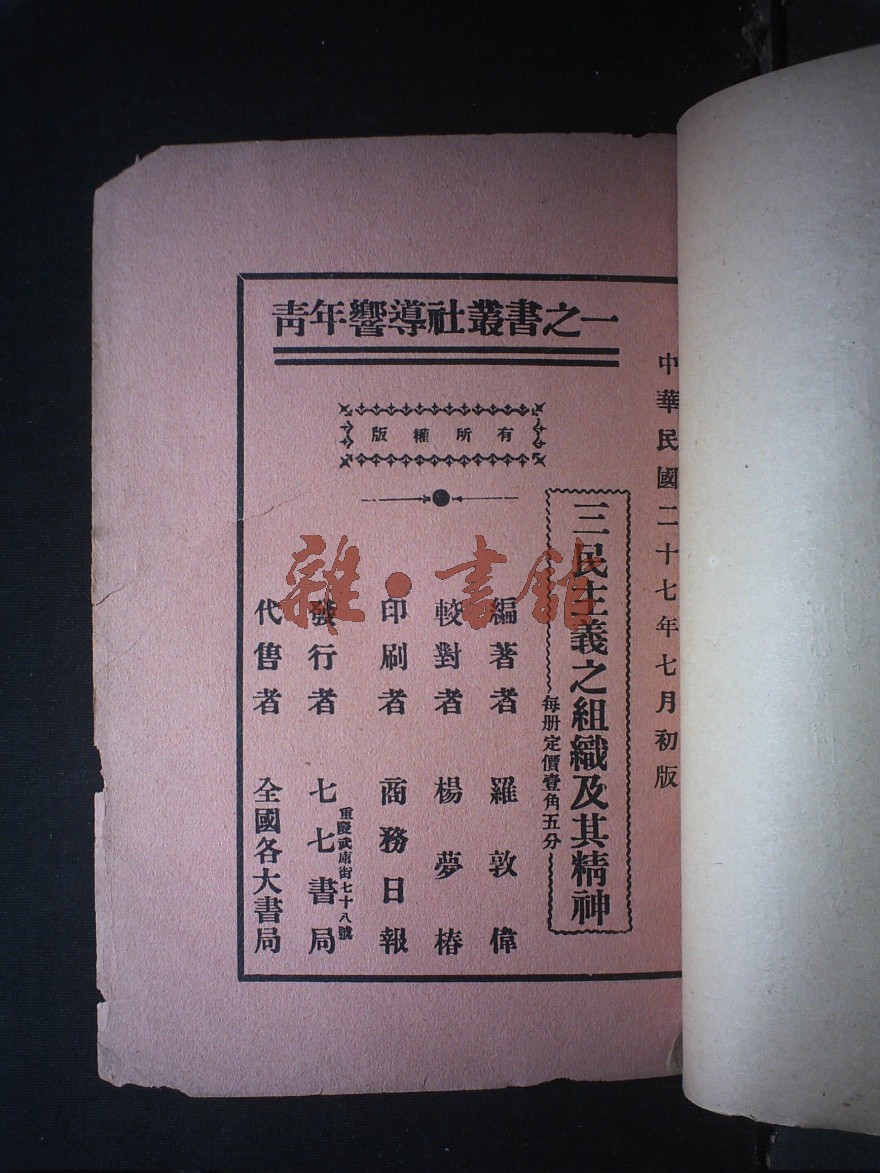 中華民國二十七年七月初版
青年響導社叢書之一
有所權版
三民主義之組織及其精神
每册定價壹角五分
編著者 羅敦偉
較對者 楊夢椿
印刷者 商務日報
發行者 七七書局
重慶武庫街七十八號
代售者 全國各大書局
雜·書館